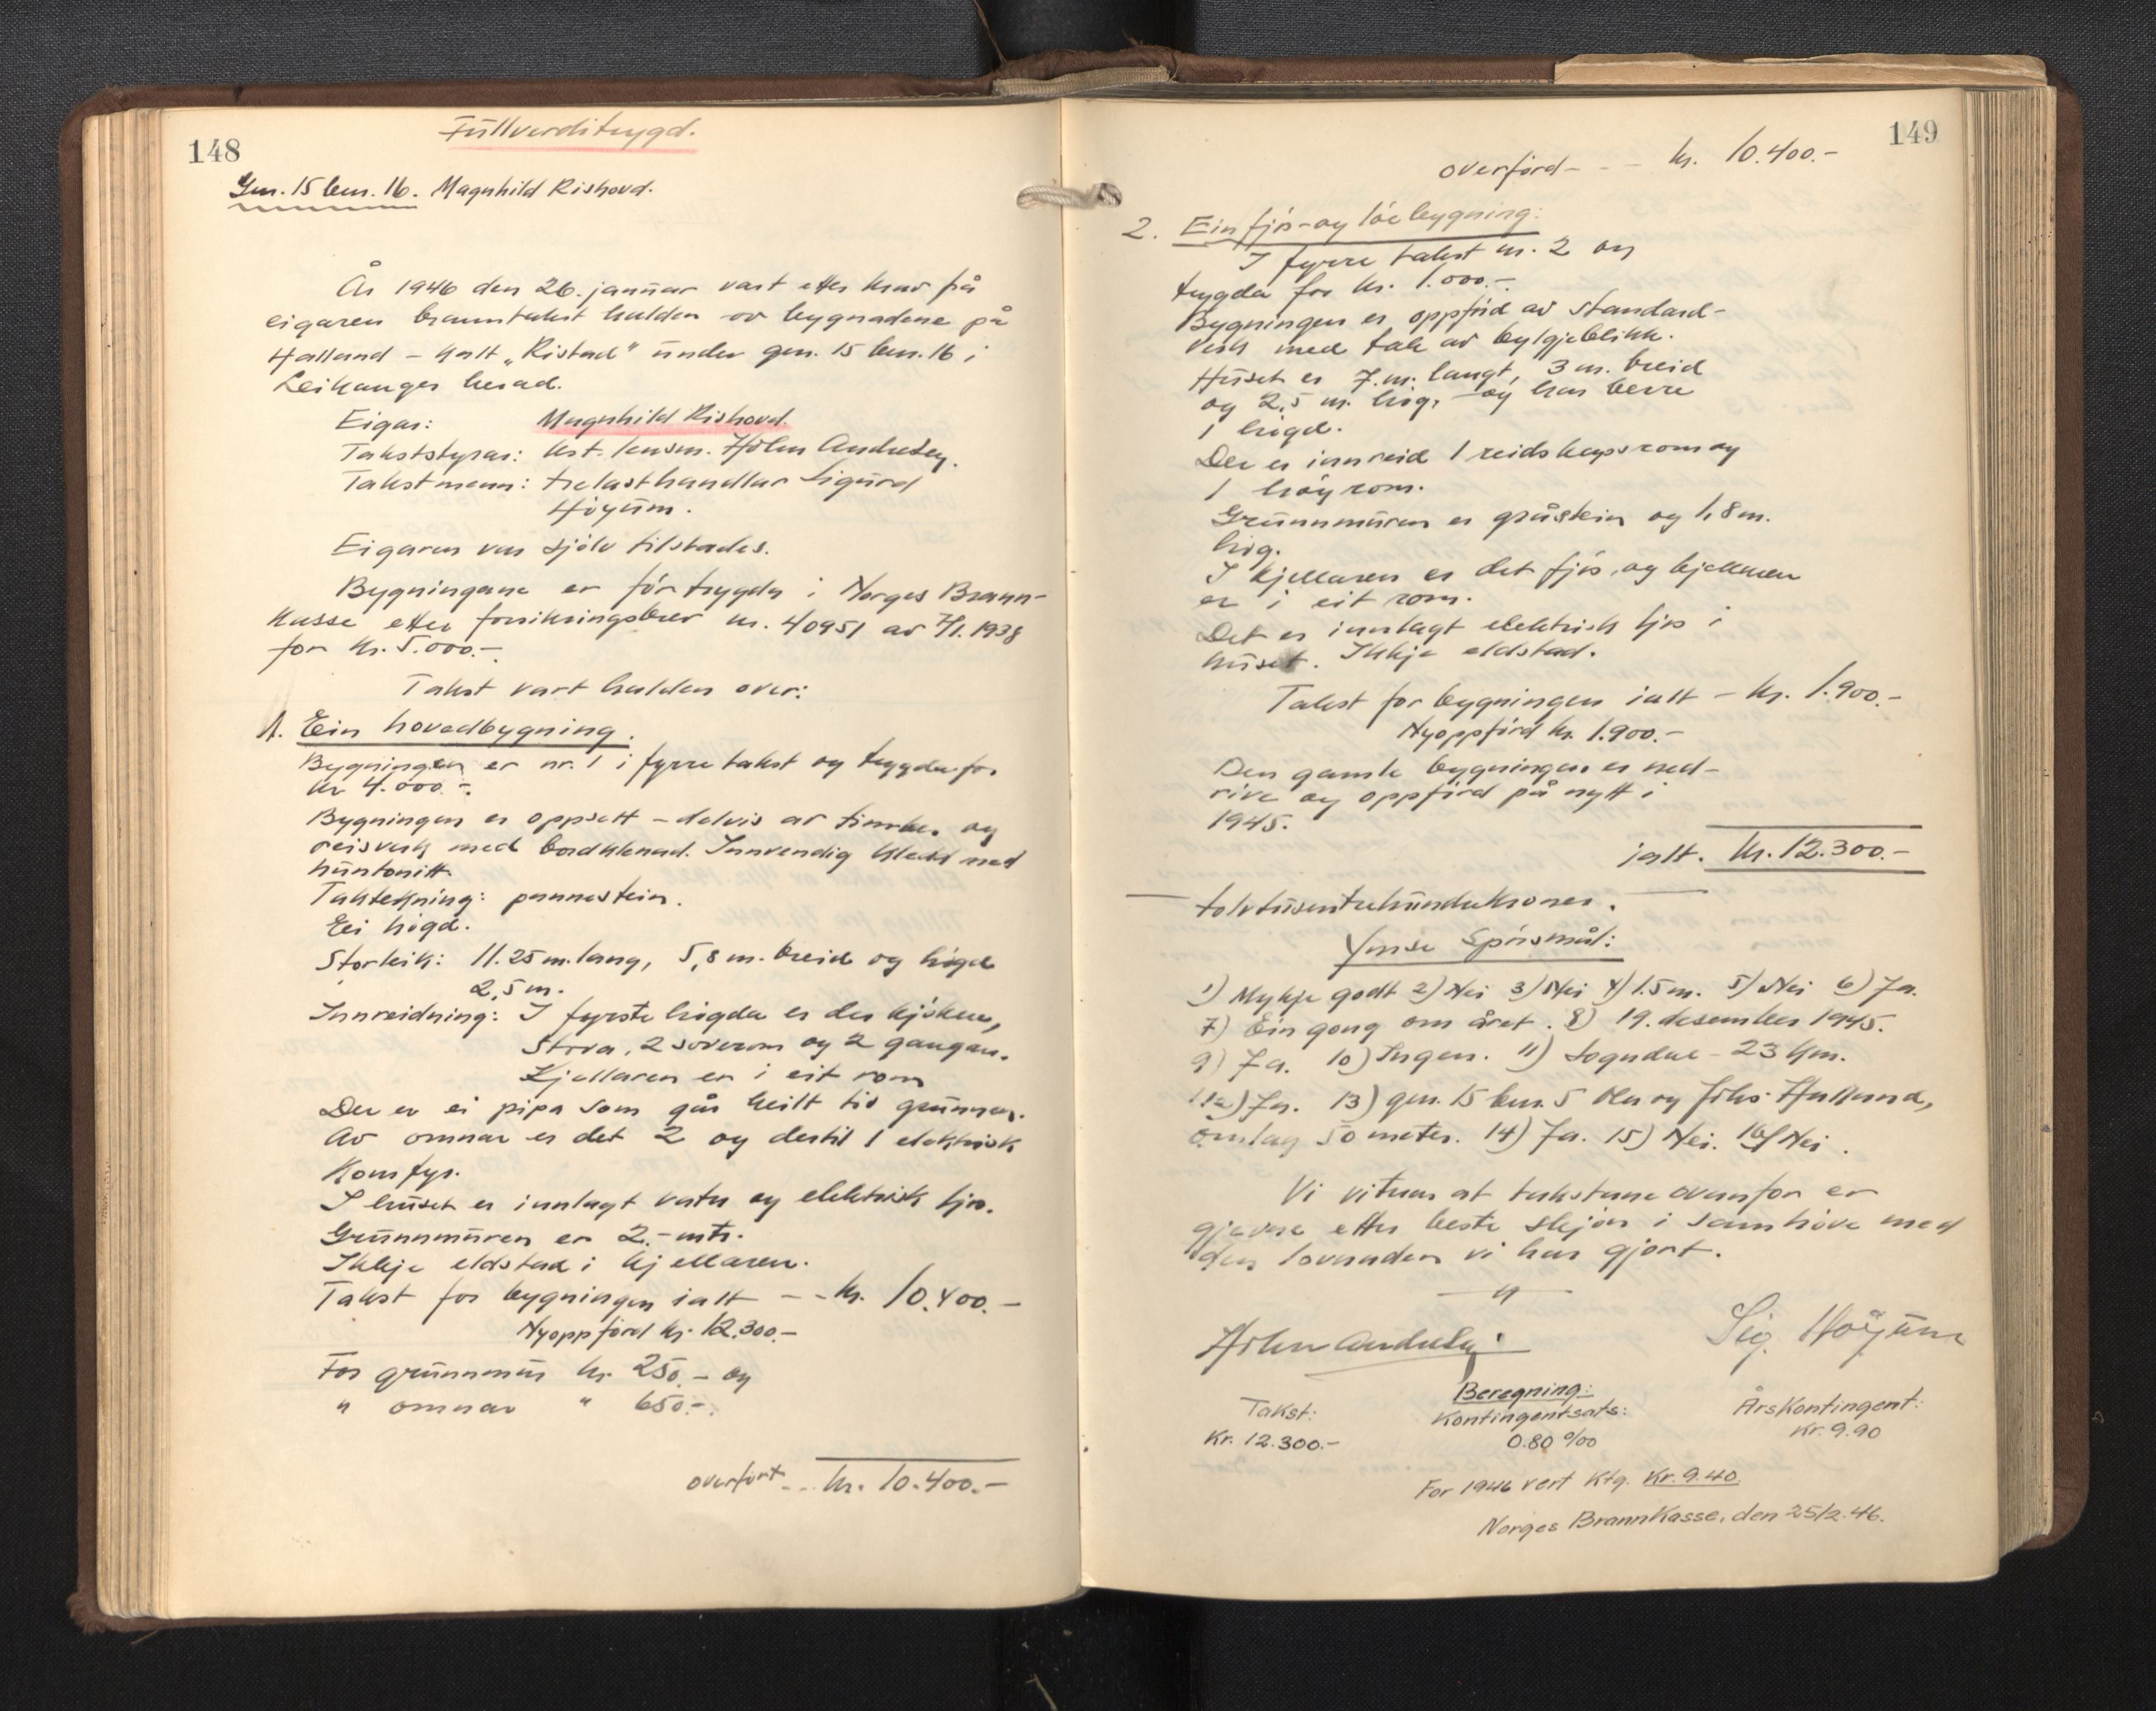 148
Fullverditrygd.
Gnr. 15 bnr. 16. Magnhild Rishovd.
År 1946 den 26. januar vart etter krav frå
eigaren branntakst halden av bygnadene på
Halland – kalt „Ristad" under gnr. 15 bnr. 16 i
Leikanger herad.
Eigar: Magnhild Rishovd.
Takststyrar: kst. lensm. Hølm Andresen.
Takstmenn: trelasthandlar Sigurd
Høyum.
Eigaren var sjølv tilstades.
Bygningane er før trygda i Norges Brann-
kasse etter forsikringsbrev nr. 40951 av 7/1. 1938
for kr. 5.000.-
Takst vart halden over:
1. Ein hovedbygning.
Bygningen er nr. 1 i fyrre takst og trygda for
kr 4.000.-
Bygningen er oppsett – delvis av timber og
reisverk med bordklednad. Innvendig kledd med
huntonitt.
Taktekning: pannestein.
Ei høgd.
Storleik: 11.25 m. lang, 5,8 m. breid og høgd
2,5 m.
Innreidning: I fyrste høgda er der kjøken,
stova, 2 soverom og 2 gangar.
Kjellaren er i eit rom
Der er ei pipa som går heilt til grunnen.
Av omnar er det 2 og dertil 1 elektrisk
komfyr.
I huset er innlagt vatn og elektrisk ljos.
Grunnmuren er 2.- mtr.
Ikkje eldstad i kjellaren.
Takst for bygningen ialt - - kr. 10.400.-
Nyoppførd kr. 12.300.-
For grunnmur kr. 250.- og
" omnar " 650.-
overført - - kr. 10.400.-
149
overførd - - - kr. 10.400.-
2. Ein fjøs- og løebygning:
I fyrre takst nr. 2 og
trygda for kr. 1.000.-
Bygningen er oppførd av standard-
verk med tak av bylgjeblikk.
Huset er 7. m. langt, 3 m. breid
og 2,5 m. høg, og har berre
1 høgd.
Der er innreid 1 reidskapsrom og
1 høyrom.
Grunnmuren er gråstein og 1,8 m.
høg.
I kjellaren er det fjøs, og kjellaren
er i eit rom.
Det er innlagt elektrisk ljos i
huset. Ikkje eldstad.
Takst for bygningen ialt – kr. 1.900.-
Nyoppførd kr. 1.900.-
Den gamle bygningen er ned-
rive og oppførd på nytt i
1945.
ialt. kr. 12.300.-
tolvtusentrehundrekroner.
Ymse Spørsmål:
1) Mykje godt 2) Nei 3) Nei 4) 1.5 m. 5) Nei 6) Ja.
7) Ein gong om året. 8) 19. desember 1945.
9) Ja. 10) Ingen. 11) Sogndal – 23 km.
12) Ja. 13) gnr. 15 bnr. 5 Halland,
omlag 50 meter. 14) Ja. 15) Nei. 16) Nei.
Vi vitnar at takstane ovanfor er
gjevne etter beste skjøn i samhøve med
den lovnaden vi har gjort.
Hølm Andresen
Sig. Høyum
Beregning:
Takst: Kontingentsats: Årskontingent:
Kr. 12.300.- 0.80 0/00 Kr. 9.90
For 1946 vert Ktg. Kr. 9.40
Norges Brannkasse, den 25/2.46.